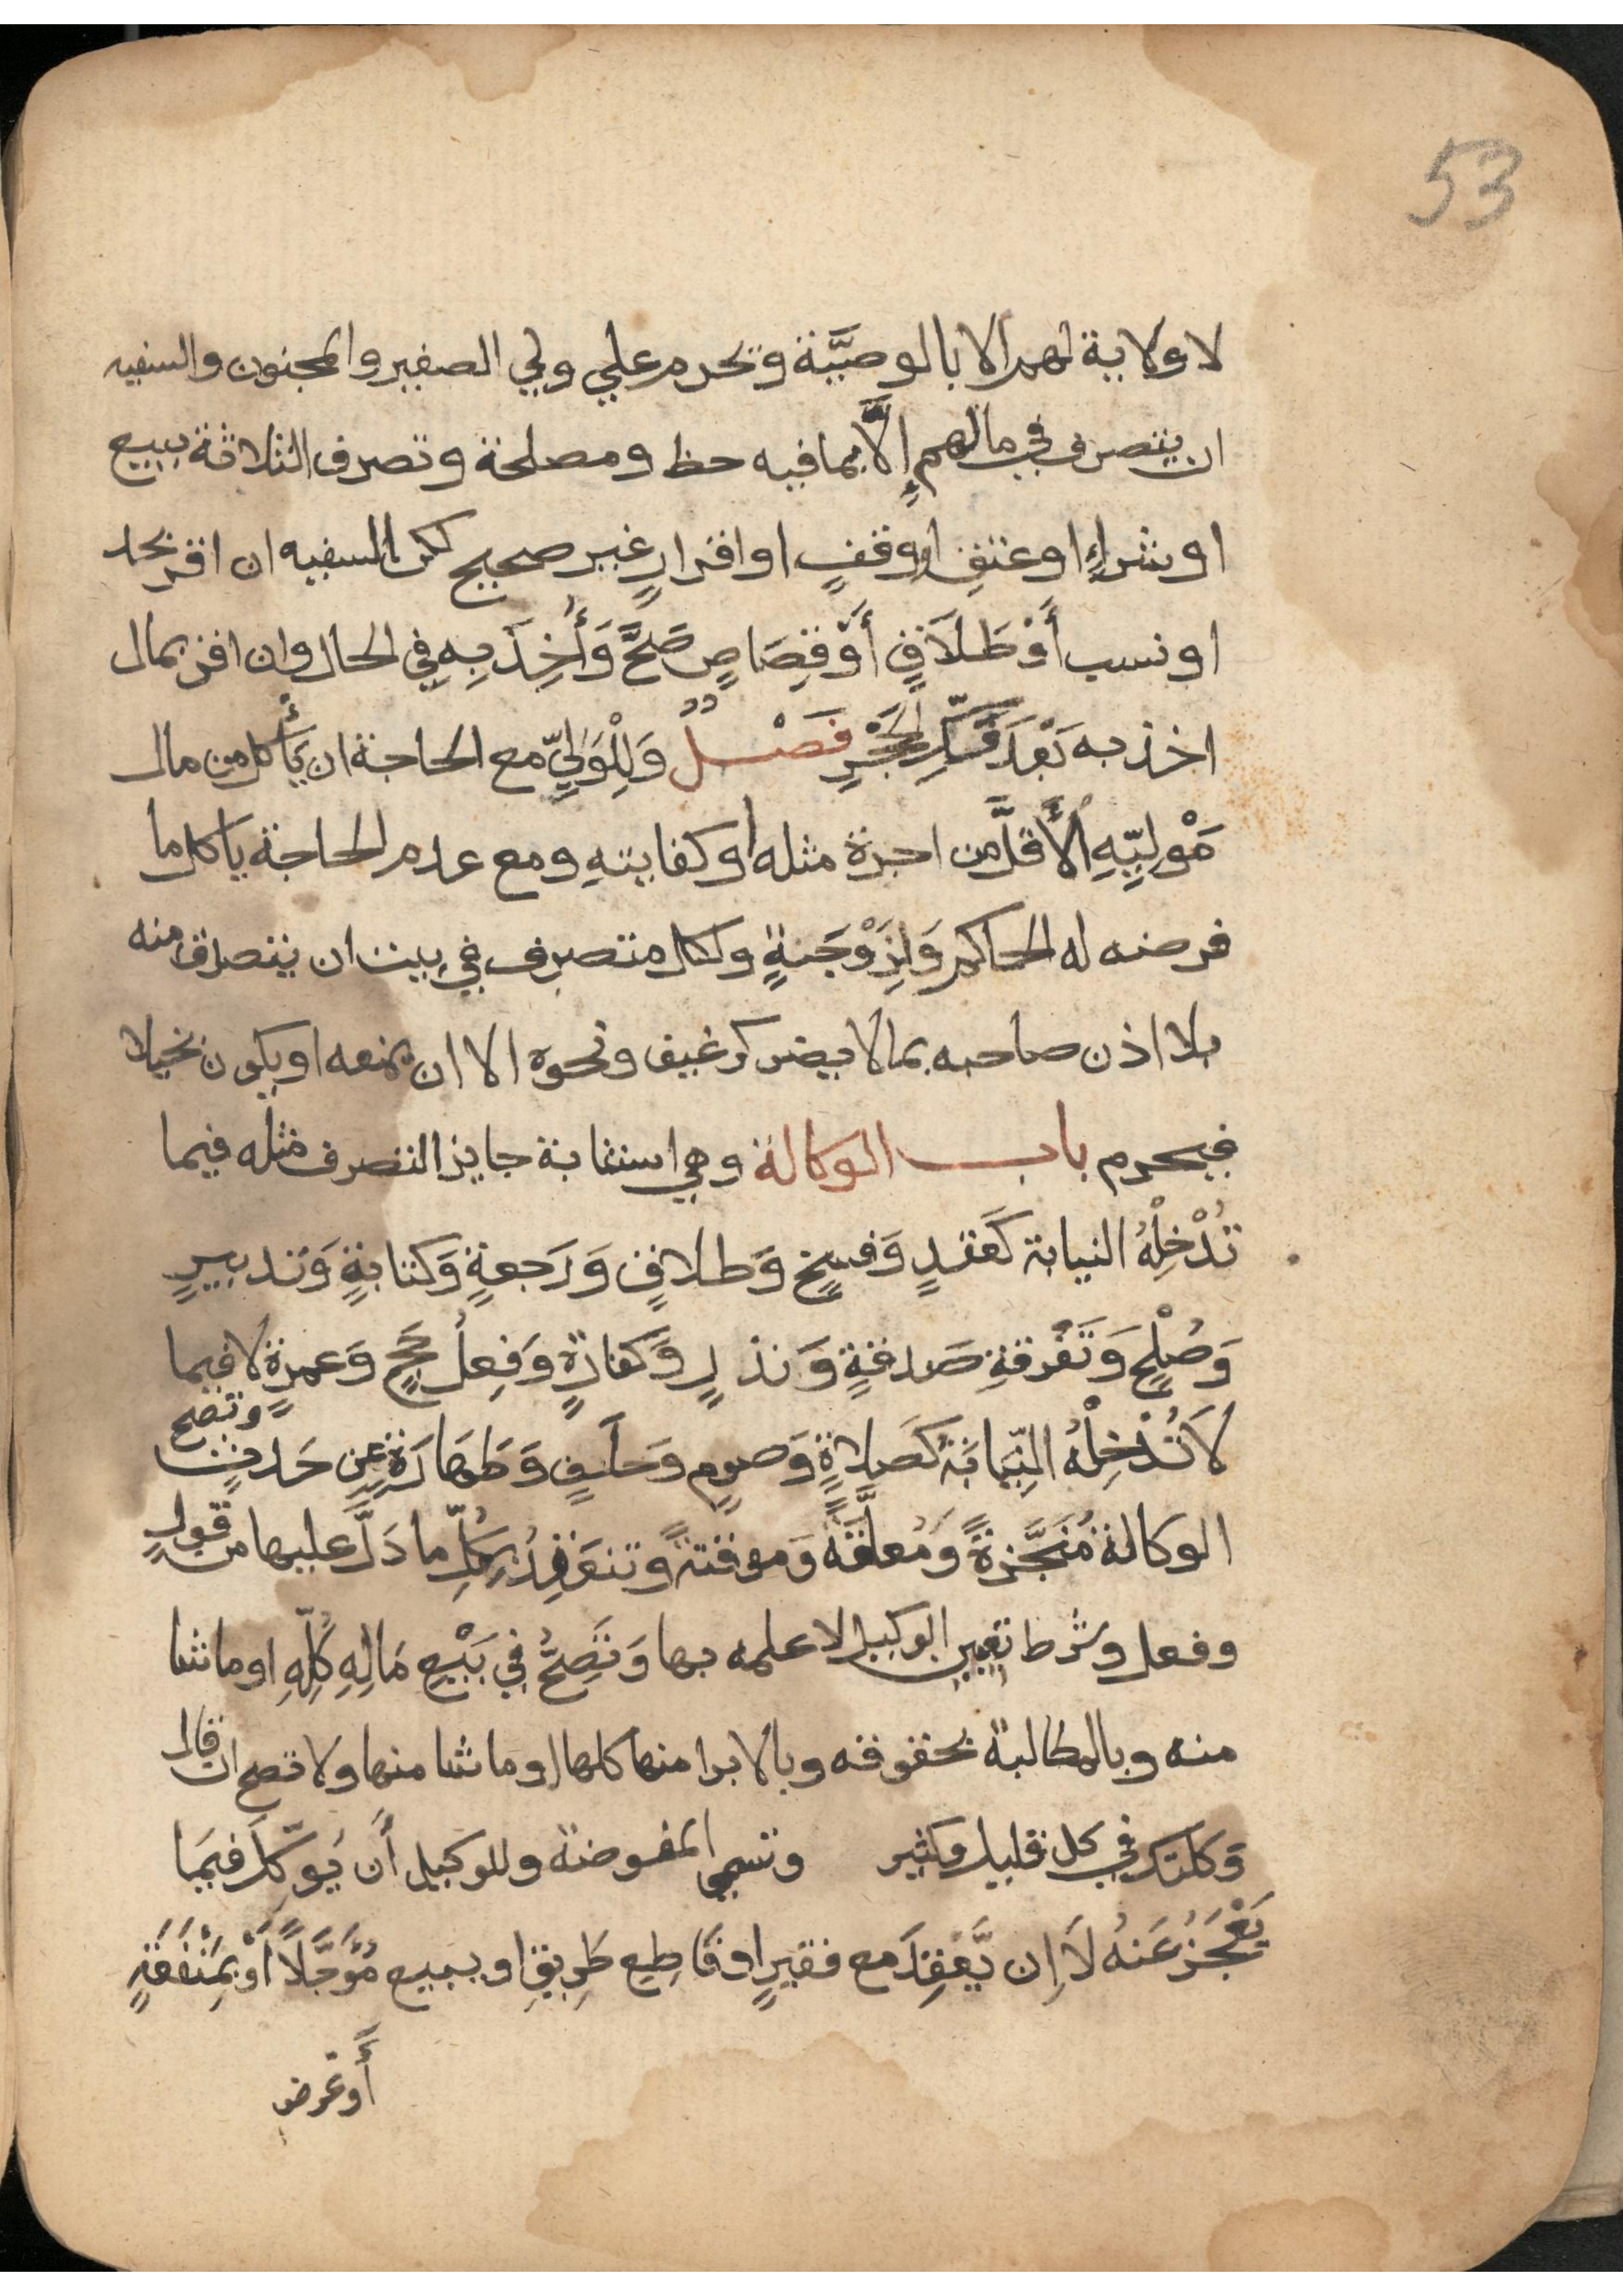 53
لا ولاية لهم الا بالوصيَّة وتحرم علي ولي الصغير والمجنون والسفيه
ان يتصرف في مالهم إلَّا بما فيه حظ ومصلحة وتصرف الثلاثة ببيع
او شراءٍ او عتقٍ او وقفٍ او اقرارٍ غير صحيح لكن السفيه ان اقر بحد
او نسب أَوْ طَلَاقٍ أَوْ قِصَاصٍ صَحَّ وَأُخِذَ بِهِ فِي الحال وان اقر بمال
اخذ به بَعْدَ فَكِّ الحَجْرِ فَصْلٌ وَلِلْوَلِيِّ مع الحاجة ان يَأْكل من مال
مَوْلِيِّهِ الأَقلَّ من اجرة مثله أو كفايتهِ ومع عدم الحاجة ياكل ما
فرضه له الحاكم وَلِزَوْجَةٍ ولكل متصرف في بيت ان يتصدق منه
بلا اذن صاحبه بما لا يضر كرغيف ونحوه الا ان يمنعه او يكون بخيلا
فيحرم باب الوكالة وهي استنابة جايز التصرف مثله فيما
تُدْخِلْهُ النيابة كَعَقدٍ وَفسخٍ وَطلاقٍ وَرَجعةٍ وَكتابةٍ وَتدبيرٍ
وَصُلْحٍ وَتَفْرقةِ صَدقةٍ وَنذرٍ وَكفارةٍ وَفِعلُ حَجٍّ وَعمرةٍ لا فيما
لَا تُدْخِلْهُ النِّيَابَةُ كَصَلاةٍ وَصومٍ وَحلفٍ وَطهَارَةٍ عن حَدثٍ وتصح
الوكالة مُنَجَّزةً وَمُعلَّقَةً وَموقتةً وتنعَقِدُ بِكُلِّ ما دَلَّ عليها من قولٍ
وفعل وشرط تعيين الوكيل لا علمه بها وَتَصِحُّ فِي بَيْعِ مَالِهِ كُلِّهِ او ما شا
منه وبالمطالبة بحقوقه وبالابرا منها كلها او ما شا منها ولا تصح ان قال
وَكلتك في كل قليل وكثير وتسمي المفوضة وللوكيل أَن يُوَكِّلَ فيمَا
يَعْجَزُ عَنهُ لَا إِن يَّعقِدَ مع فقيرٍ او قَاطِعِ طَرِيقٍ او يبيع مُؤَجَّلًا أَوْ بِمَنْفَعَةٍ
أَو عرض